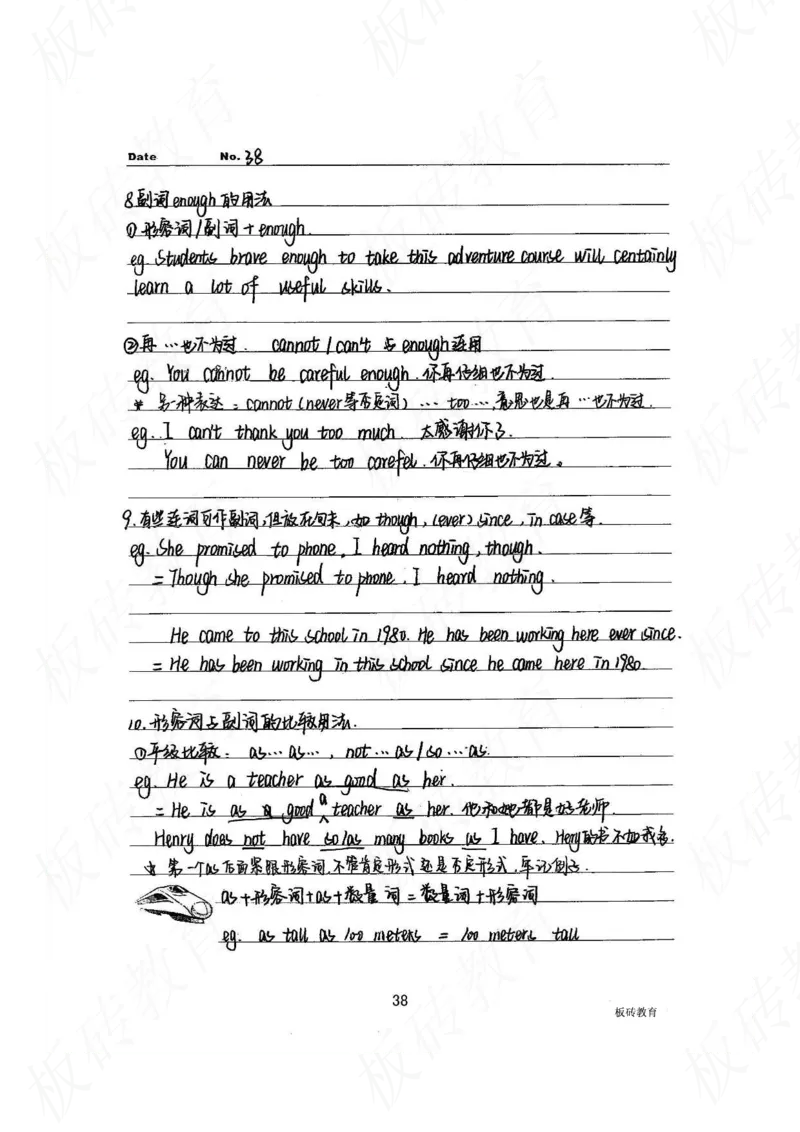 Date No. 38
8.副词enough的用法
①形容词/副词+enough.
eg. Students brave enough to take this adventure course will centainly
learn a lot of useful skills.
②再…也不为过. cannot/can't 与enough连用
eg. You cannot be careful enough. 你再仔细也不为过.
* 另一种表达: cannot (never等否定词) … too …, 意思也是再…也不为过.
eg. I can't thank you too much. 太感谢你了.
You can never be too carefel. 你再仔细也不为过。
9.有些连词可作副词,但放在句末,如though, (ever) since, in case等.
eg. She promised to phone, I heard nothing, though.
= Though she promised to phone, I heard nothing.
He came to this school in 1980. He has been working here ever since.
= He has been working in this school since he came here in 1980.
10.形容词与副词的比较用法.
①平级比较: as… as…, not … as/so … as.
eg. He is a teacher as good as her.
= He is as good a teacher as her. 他和她都是好老师.
Henry does not have so/as many books as I have. Henry的书不如我多.
* 第一个as后面紧跟形容词,不管肯定形式还是否定形式,牢记例子.
as+形容词+as+数量词=数量词+形容词
eg. as tall as 100 meters = 100 meters tall
38
板砖教育